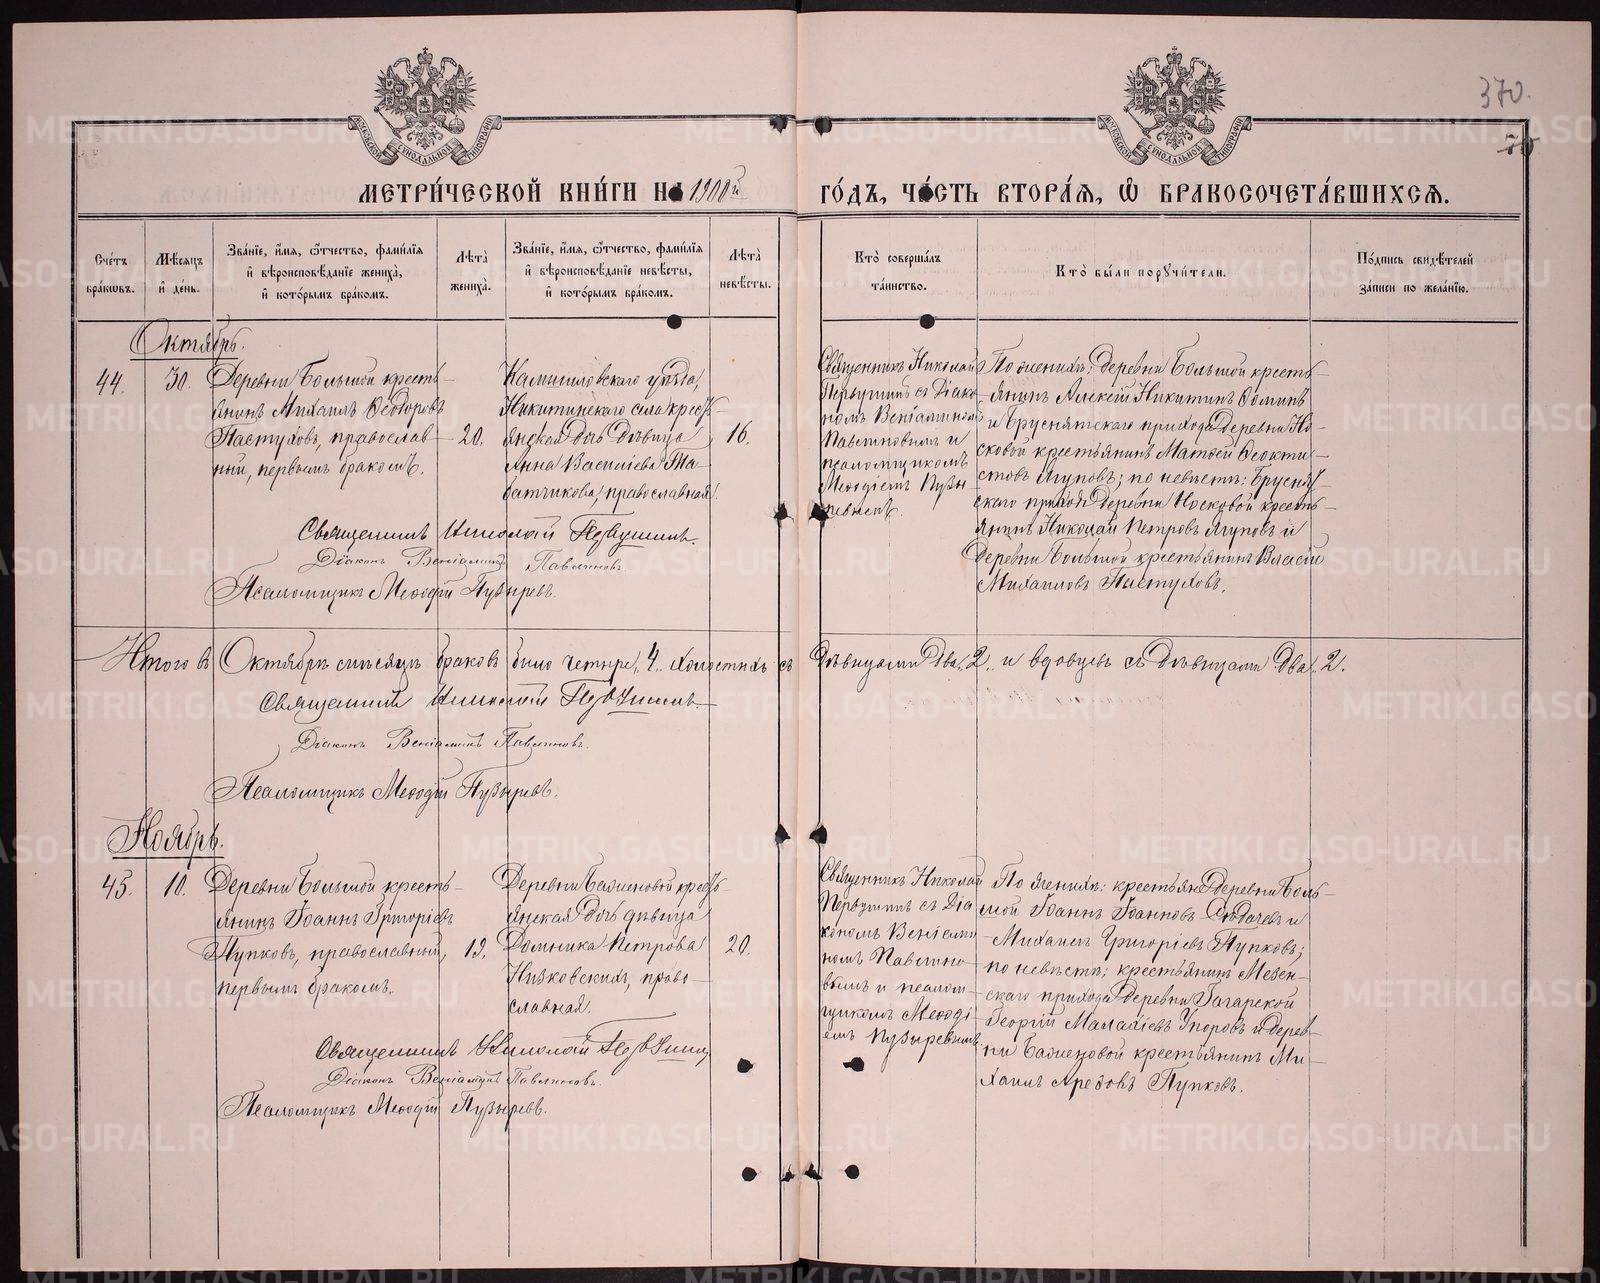 370.
МЕТРИ́ЧЕСКОЙ КНИ́ГИ НА 1900й ГО́ДЪ, ЧА́СТЬ ВТОРА́Я, Ѡ БРАКОСОЧЕТА́ВШИХСЯ.
Сче́тъ бра́кѡвъ.
Мѣ́сѧцъ и́ де́нь.
Зва́нїе, и́мѧ, ѻ҆́тчество, фами́лїѧ и҆ вѣроисповѣ́данїе жениха̀, и҆ кото́рымъ бра́комъ.
Лѣта̀ жениха̀.
Зва́нїе, и́мѧ, ѻ҆́тчество, фами́лїѧ и҆ вѣроисповѣ́данїе невѣ́сты, и҆ кото́рымъ бра́комъ.
Лѣта̀ невѣ́сты.
Кто̀ соверша́лъ та́инство.
Кто̀ бы́ли порꙋчи́тели.
По́дпись свидѣ́телей за́писи по жела́нїю.
Октябрь.
44.
30.
Деревни Большой кресть-
янинъ Михаилъ Ѳеодоровъ
Пастуховъ, православ-
ный, первымъ бракомъ.
20.
Камышловскаго уѣзда,
Никитинскаго села кресть-
янская дочь дѣвица
Анна Васильева Та-
батчикова, православная.
16.
Священникъ Николай
Первушинъ съ Діако-
номъ Веніаминомъ
Павлиновымъ и
псаломщикомъ
Меѳодіемъ Пузы-
ревымъ.
По женихѣ: деревни Большой кресть-
янинъ Алексій Никитинъ Ѳоминъ
и Бруснятскаго прихода деревни Но-
сковой крестьянинъ Матѳей Ѳеокти-
стовъ Ягуповъ; по невѣстѣ: Бруснят-
скаго прихода деревни Носковой кресть-
янинъ Николай Петровъ Ягуповъ и
деревни Большой крестьянинъ Власій
Михаиловъ Пастуховъ.
Священникъ Николай Первушинъ.
Діаконъ Веніаминъ Павлиновъ
Псаломщикъ Меѳодій Пузыревъ.
Итого въ Октябрѣ мѣсяцѣ браковъ было четыре „4„ холостыхъ съ дѣвицами два „2„ и вдовцевъ съ дѣвицами два „2.
Священникъ Николай Первушинъ.
Діаконъ Веніаминъ Павлиновъ.
Псаломщикъ Меѳодій Пузыревъ.
Ноябрь.
45.
10.
Деревни Большой кресть-
янинъ Іоаннъ Григоріевъ
Пупковъ, православный,
первымъ бракомъ.
19.
Деревни Баженовой кресть-
янская дочь дѣвица
Домника Петрова
Низковскихъ, право-
славная.
20.
Священникъ Николай
Первушинъ съ Діа-
кономъ Веніами-
номъ Павлино-
вымъ и псалом-
щикомъ Меѳоді-
емъ Пузыревымъ.
По женихѣ: крестьяне деревни Боль-
шой Іоаннъ Іоанновъ Сюдачевъ и
Михаилъ Григоріевъ Пупковъ;
по невѣстѣ; крестьянинъ Мезен-
скаго прихода деревни Гагарской
Георгій Малахіевъ Упоровъ и дерев-
ни Баженовой крестьянинъ Ми-
хаилъ Пупковъ.
Священникъ Николай Первушинъ
Діаконъ Веніаминъ Павлиновъ.
Псаломщикъ Меѳодій Пузыревъ.